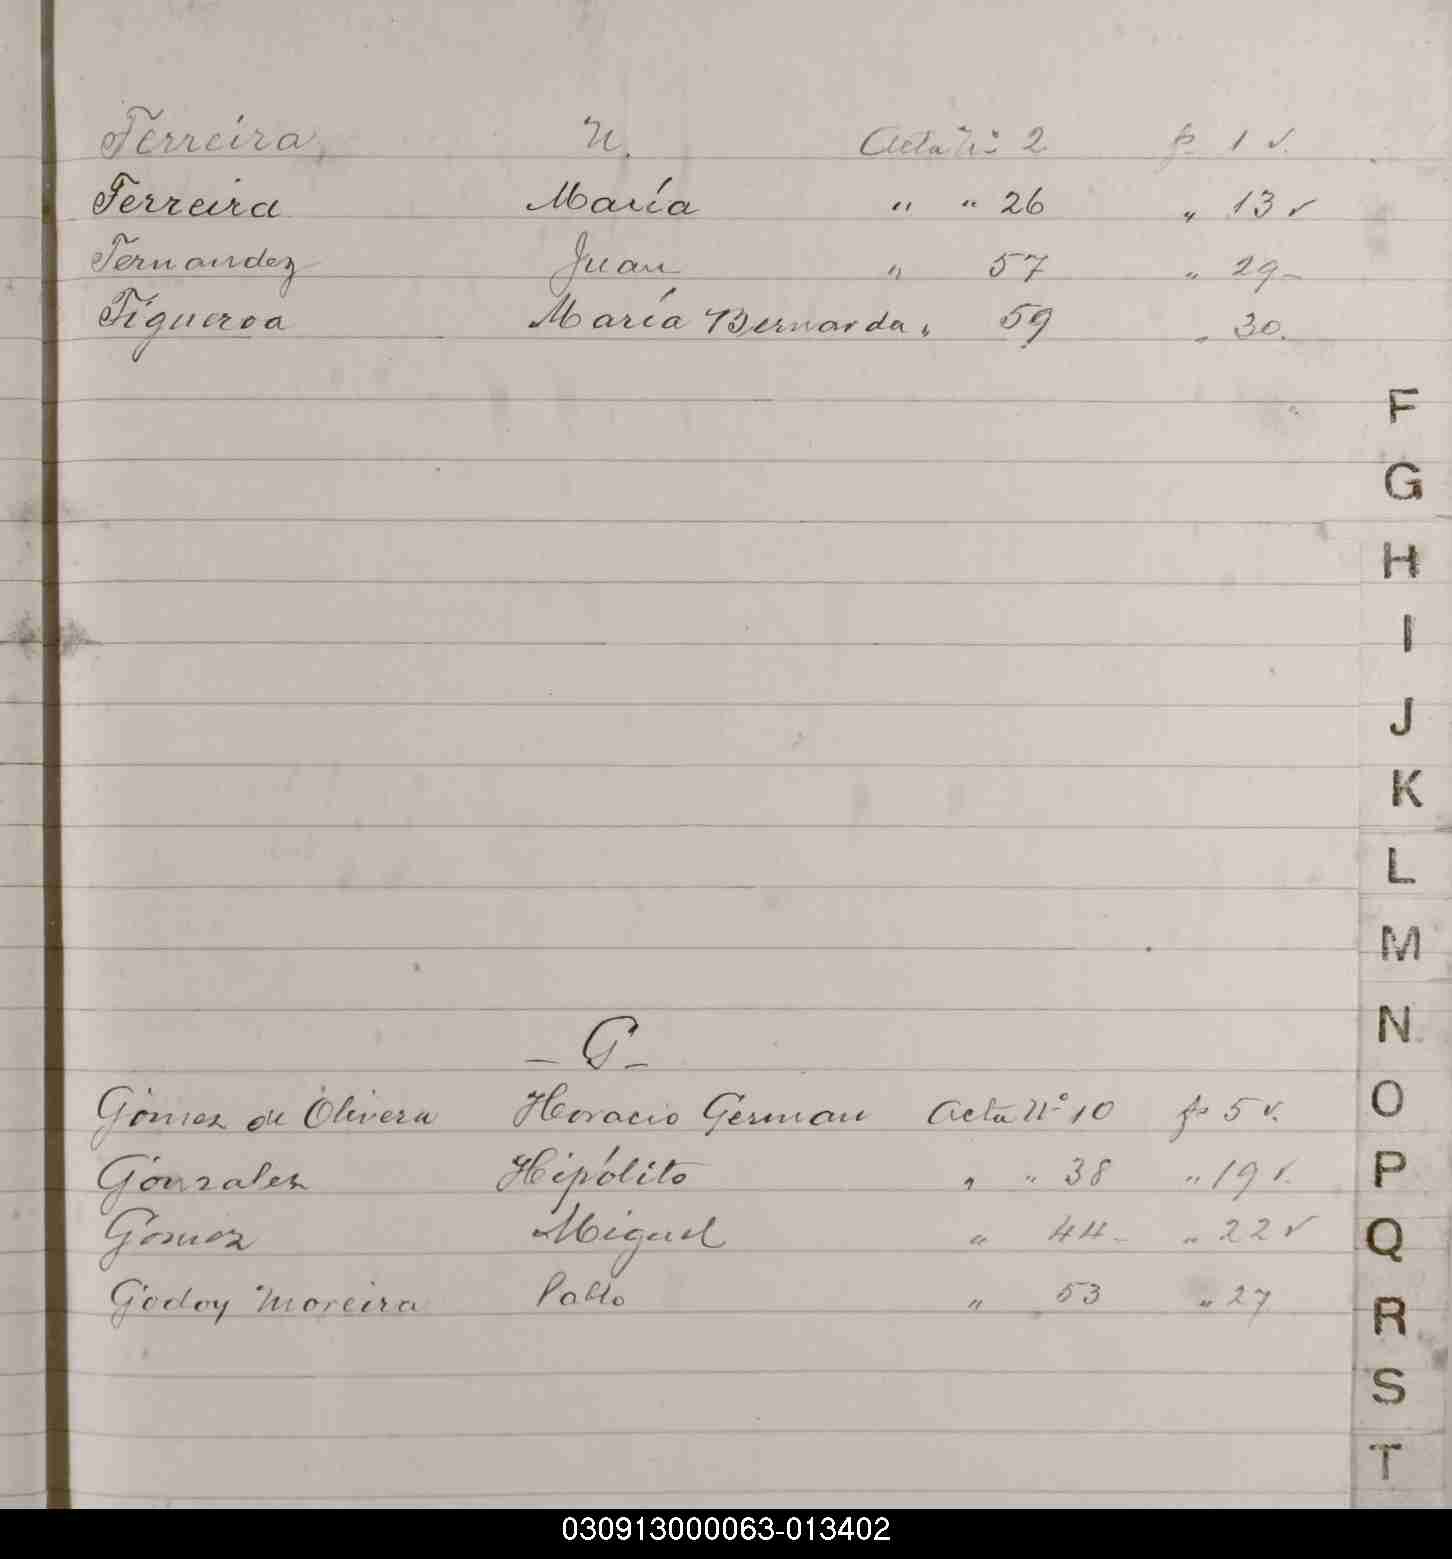 Ferreira N. Acta Nº 2 fº 1 v.
Ferreira María " " 26 " 13 v
Fernandez Juan " 57 " 29-
Figueroa María Bernarda " 59 " 30.
F
G
H
I
J
K
L
M
N
O
P
Q
R
S
T
- G -
Gómez de Olivera Horacio German Acta Nº 10 fº 5 v.
Gonzalez Hipólito " " 38 " 19 v.
Gomez Miguel " 44- " 22 v
Godoy Moreira Pablo " 53 " 27
030913000063-013402